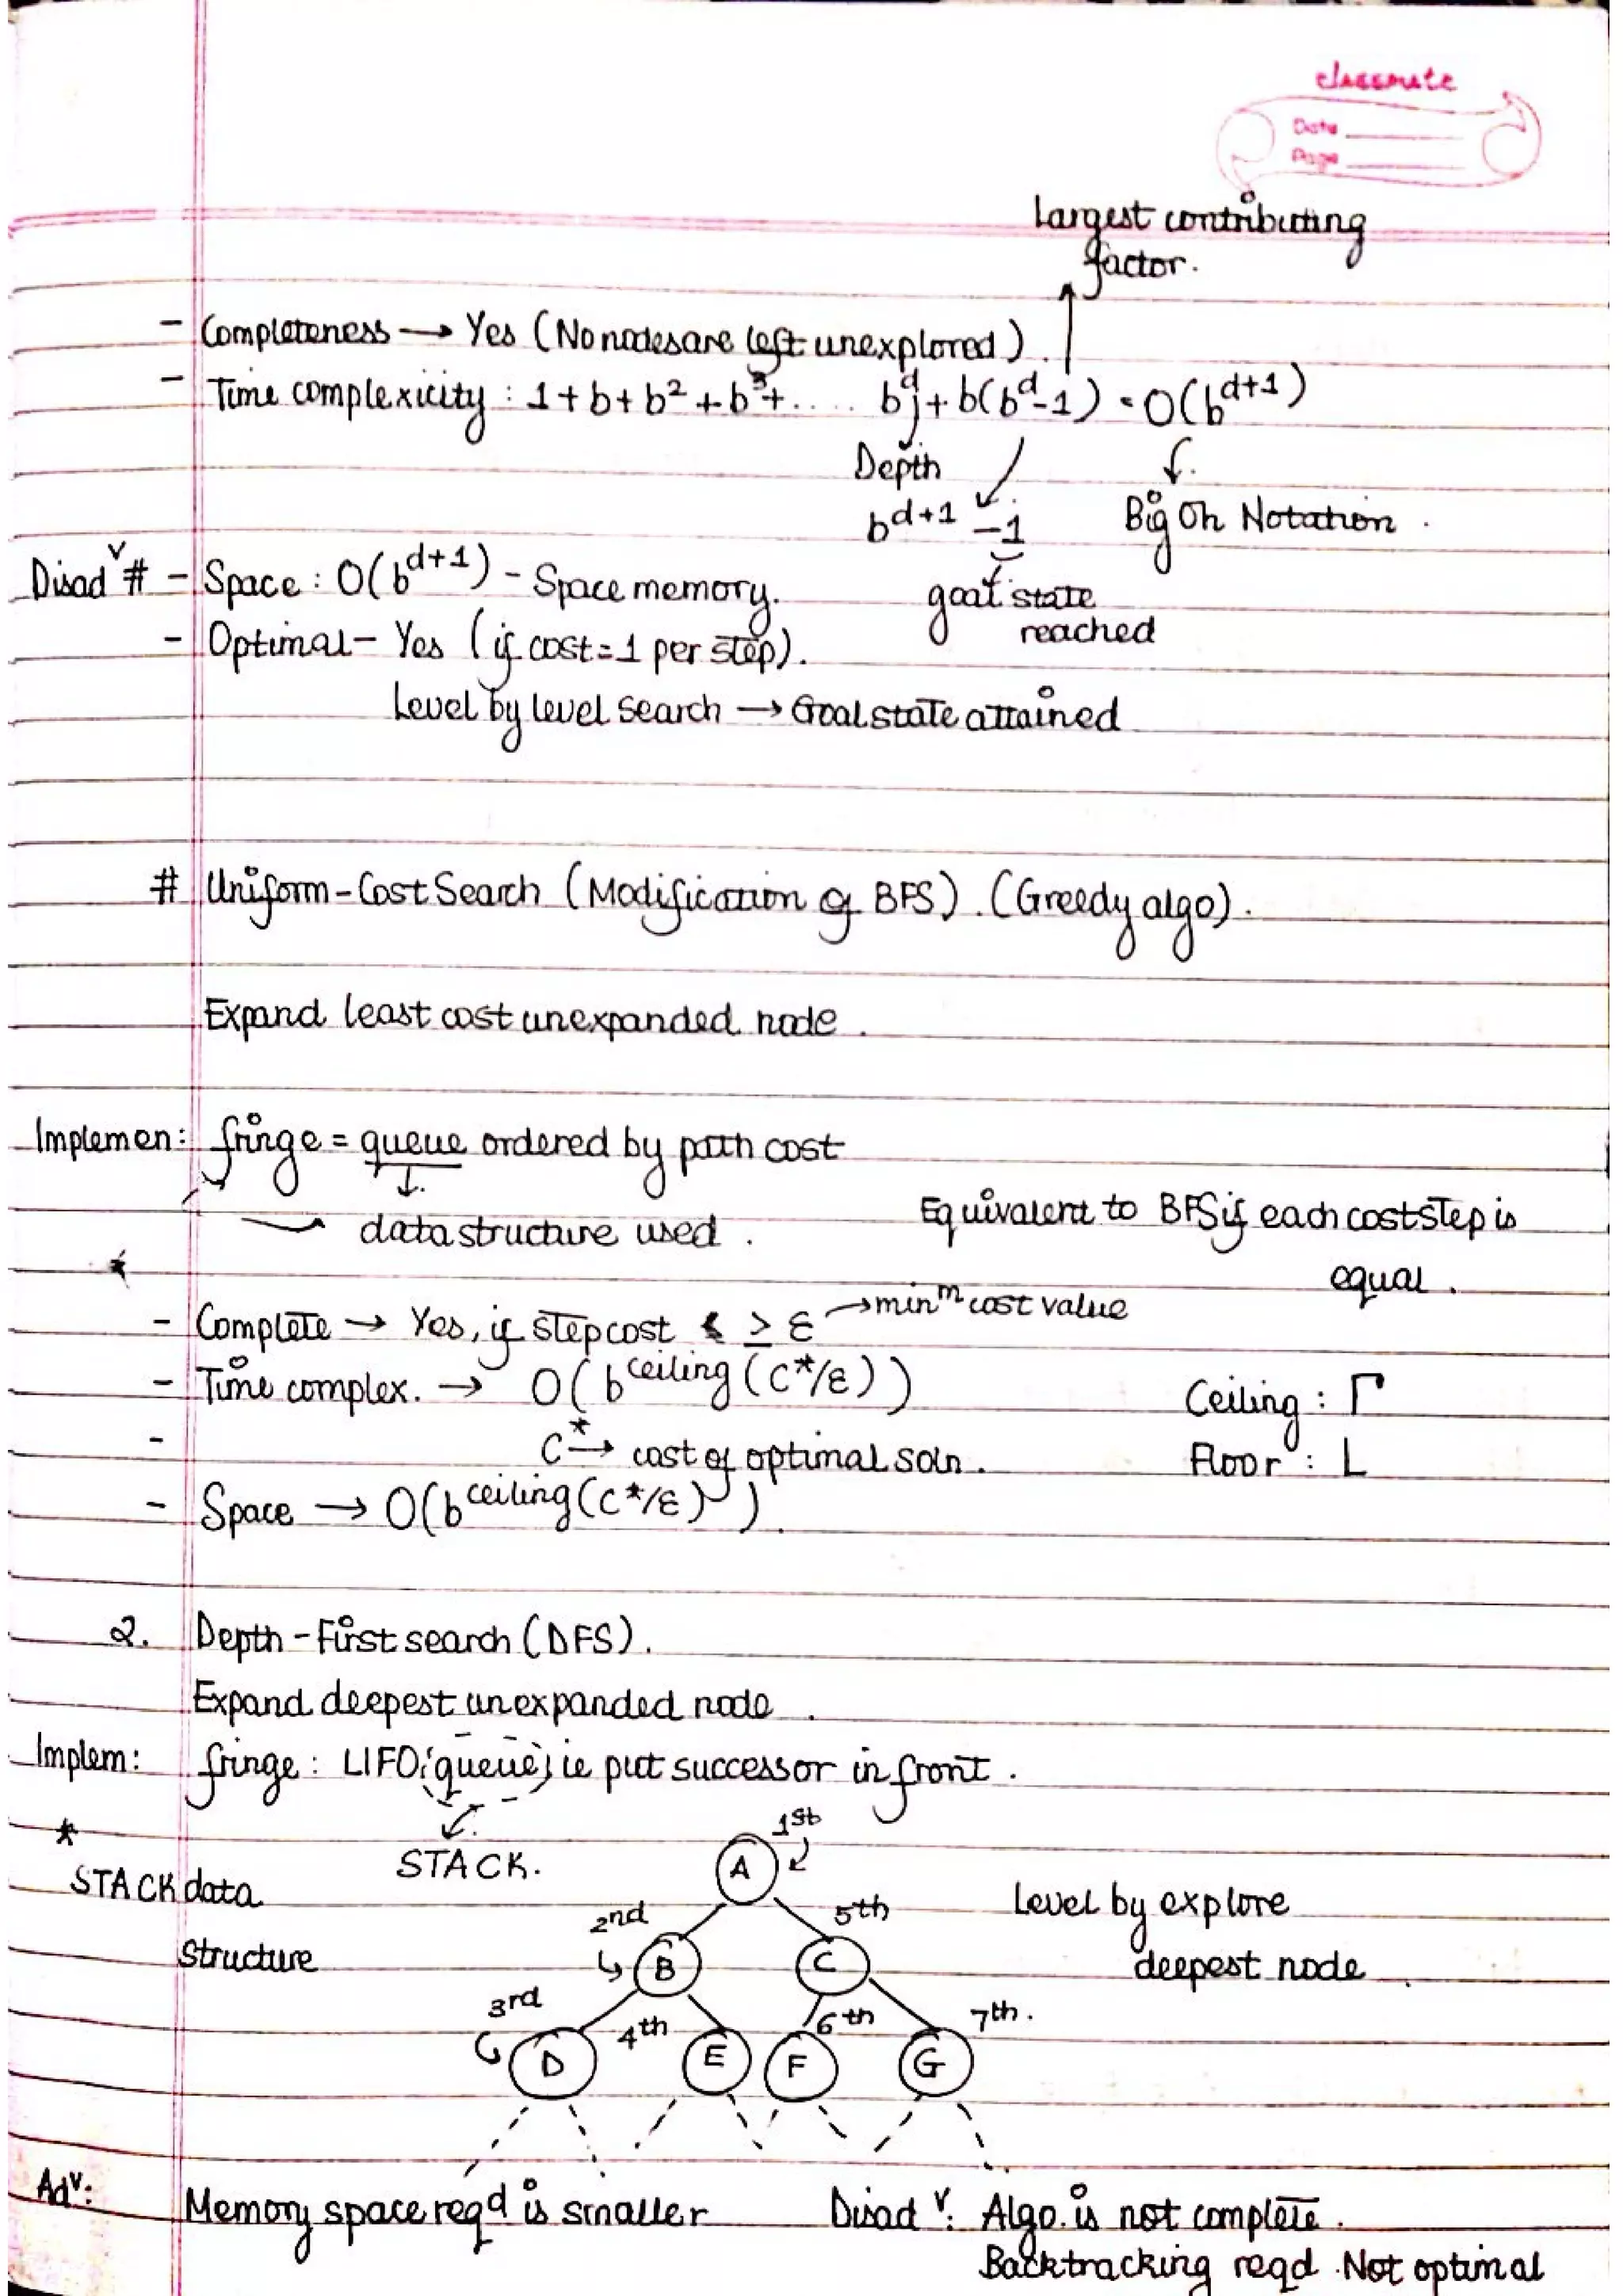 classmate
Date
Page
Largest contributing
factor.
- Completeness → Yes (No nodes are left unexplored).
- Time complexicity : 1 + b + b² + b³ + ..... b^d + b(b^d-1) = O(b^(d+1))
Depth
b^(d+1) -1
Big Oh Notation.
Disad^v # - Space : O(b^(d+1)) - Space memory.
goal state
reached
- Optimal - Yes (if cost = 1 per step).
Level by level search → Goal state attained
# Uniform-Cost Search (Modification of BFS). (Greedy algo).
Expand least cost unexpanded node.
Implemen: fringe = queue ordered by path cost
data structure used.
Equivalent to BFS if each cost step is
equal.
- Complete → Yes, if step cost ≥ ε → min^m cost value
- Time complex. → O(b^ceiling(C*/ε))
Ceiling : Γ
- C* → cost of optimal soln.
Floor : L
- Space → O(b^ceiling(C*/ε))
2. Depth-First search (DFS).
Expand deepest unexpanded node.
Implem: fringe : LIFO 'queue' ie put successor in front.
* STACK data
structure
STACK.
1st
A
2nd
5th
B
C
Level by explore
deepest node.
3rd
4th
6th
7th.
D
E
F
G
Ad^v: Memory space reqd is smaller
Disad^v: Algo. is not complete.
Backtracking reqd. Not optimal